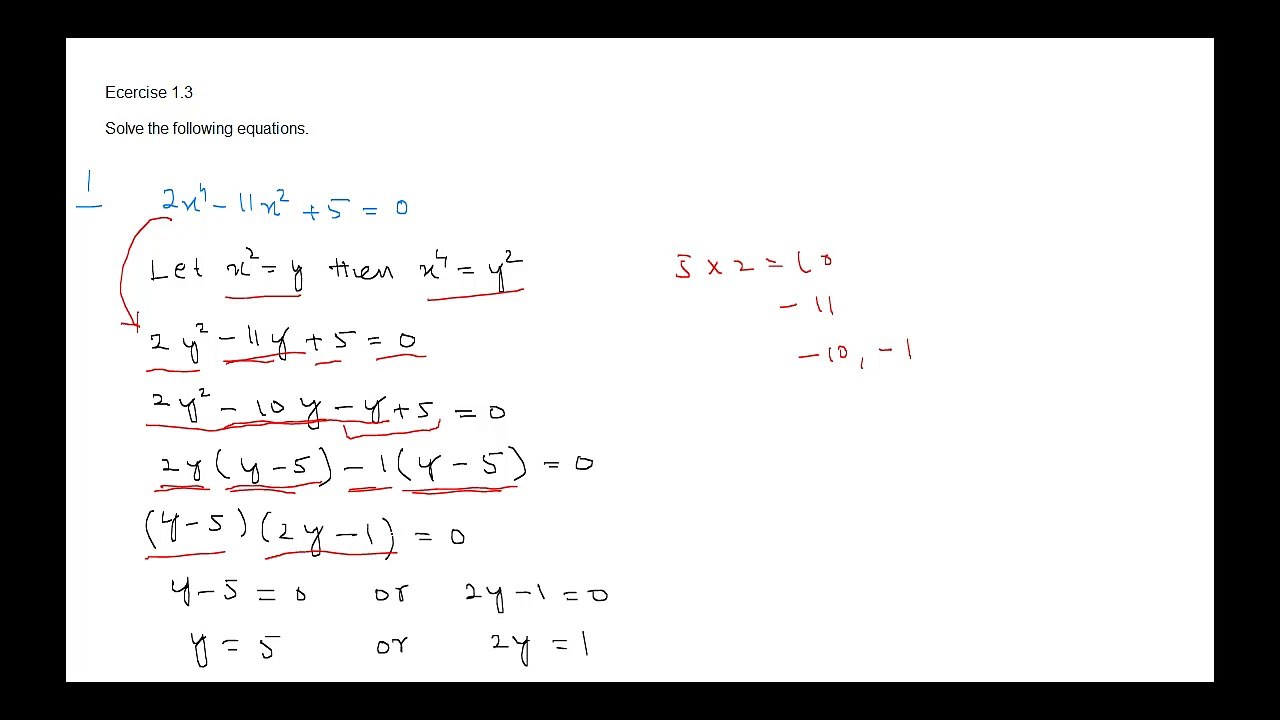 Ecercise 1.3
Solve the following equations.
1 2x⁴ - 11x² + 5 = 0
Let x² = y then x⁴ = y²
5 × 2 = 10
- 11
- 10, - 1
2y² - 11y + 5 = 0
2y² - 10y - y + 5 = 0
2y(y - 5) - 1(y - 5) = 0
(y - 5)(2y - 1) = 0
y - 5 = 0 or 2y - 1 = 0
y = 5 or 2y = 1